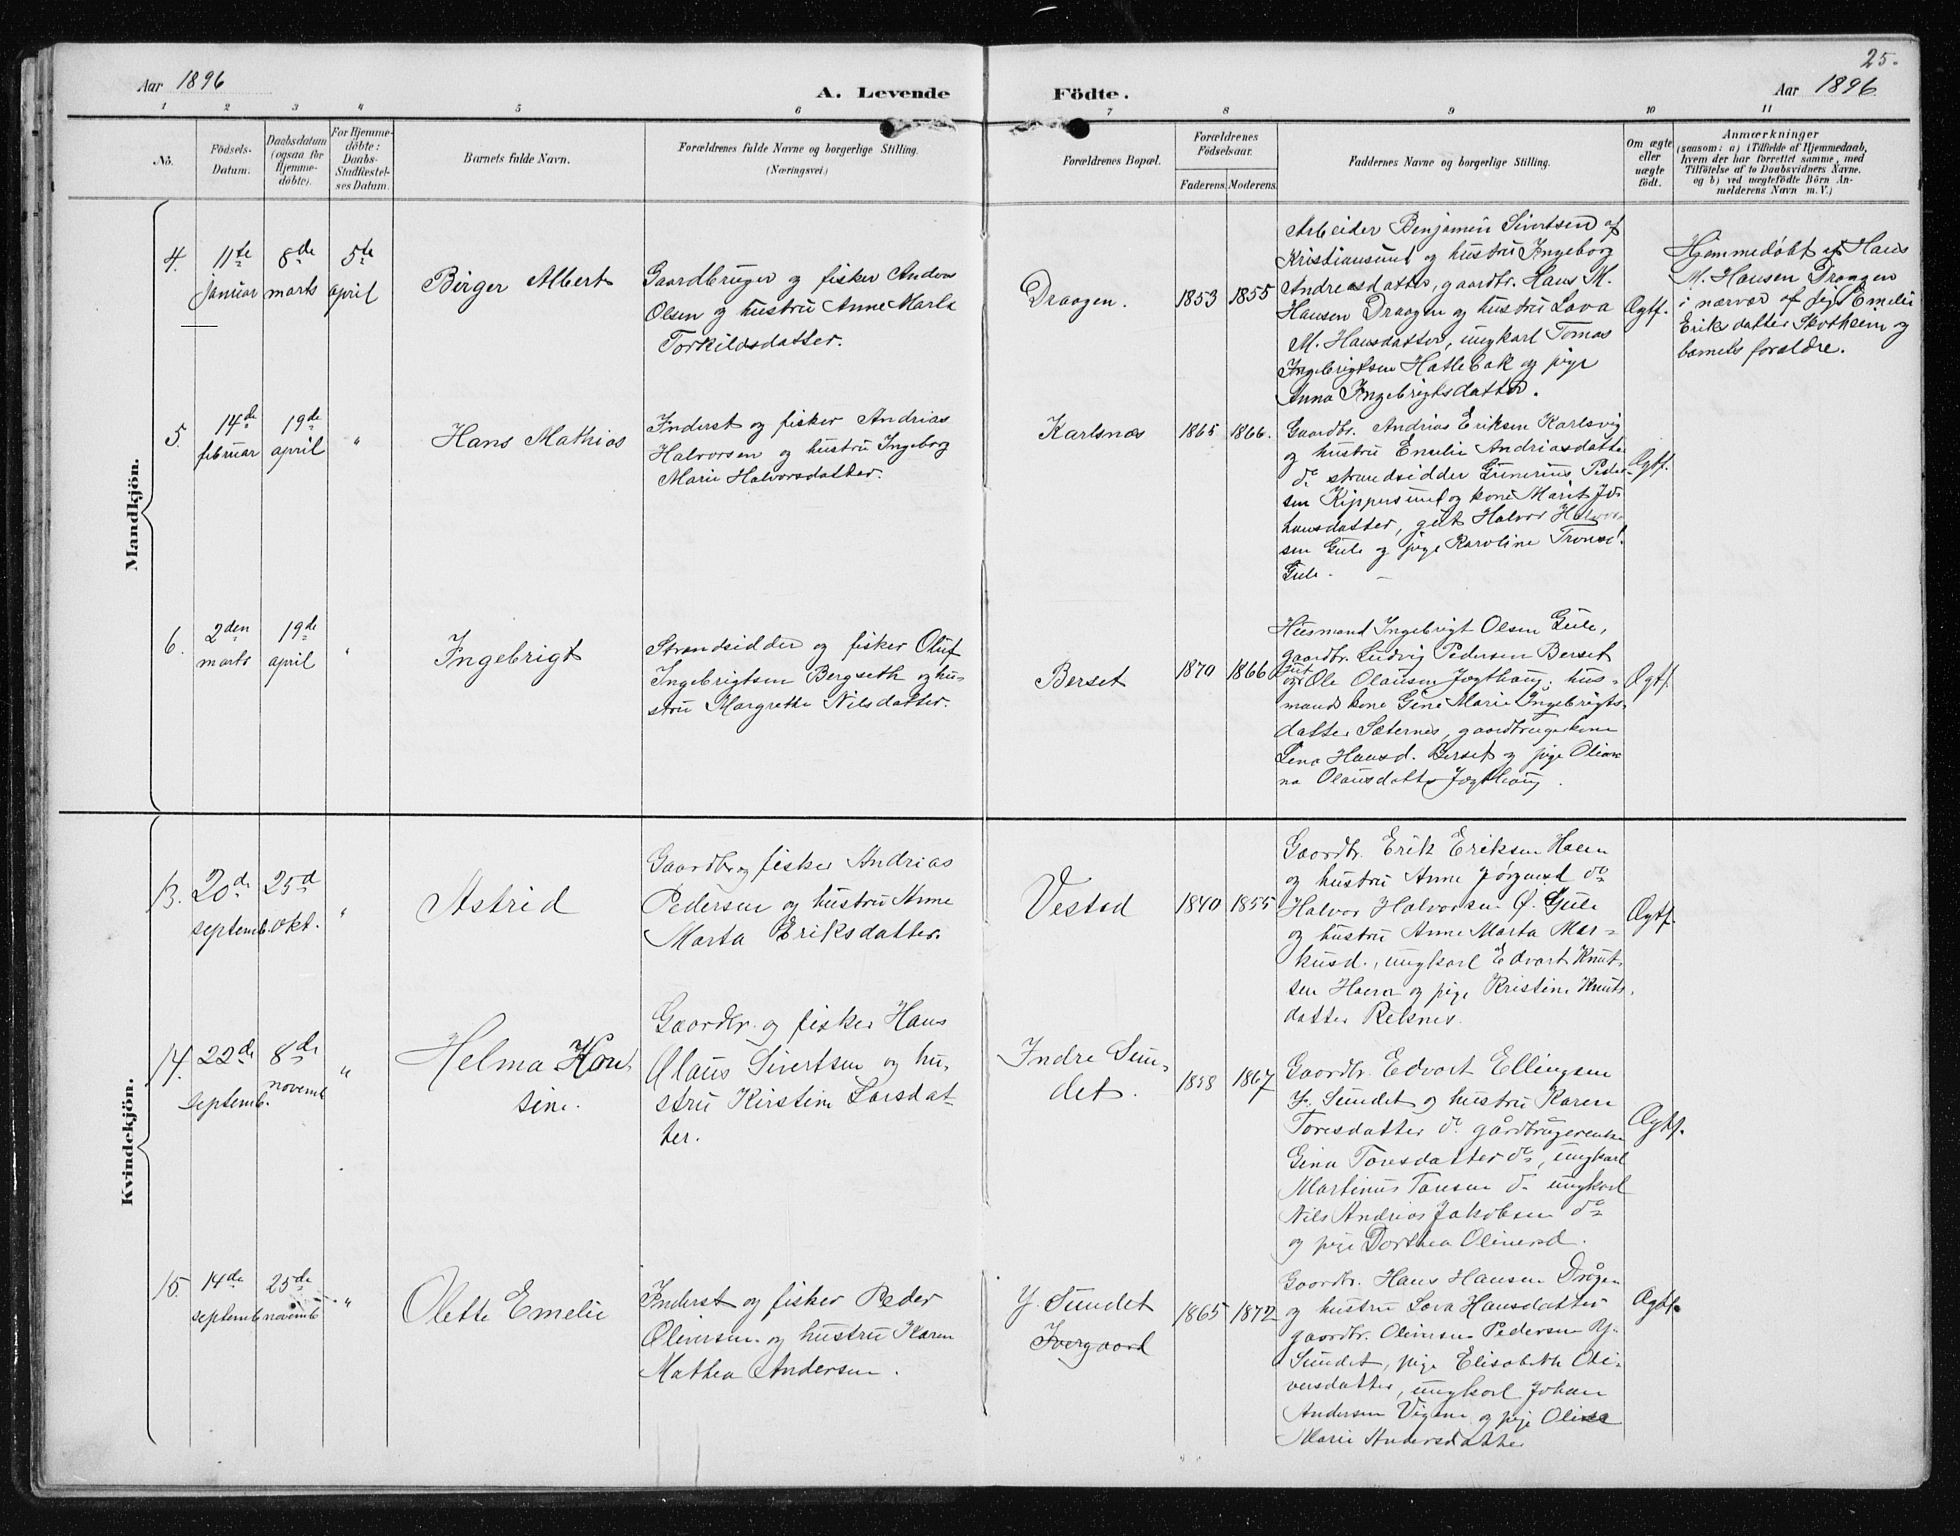 25.
Aar 1896
A. Levende
Födte.
Aar 1896
1 2 3 4 5 6 7 8 9 10 11
No.
Födsels-
Datum.
Daabsdatum
(ogsaa for
Hjemme-
döbte).
For Hjemme-
döbte:
Daabs-
Stadfæstel-
ses Datum.
Barnets fulde Navn.
Forældrenes fulde Navne og borgerlige Stilling.
(Næringsvei.)
Forældrenes Bopæl.
Forældrenes
Födselsaar.
Faderens. Moderens.
Faddernes Navne og borgerlige Stilling.
Om ægte
eller
uægte
födt.
Anmærkninger
(saasom: a) i Tilfælde af Hjemmedaab,
hvem der har forrettet samme, med
Tilföielse af to Daabsvidners Navne,
og b) ved uægtefödte Börn An-
melderens Navn m. V.)
Mandkjön.
4.
11te
januar
8de
marts
5te
april
Birger Albert
Gaardbruger og fisker Anders
Olsen og hustru Anne Marta
Torkildsdatter.
Draagen.
1853
1855
Arbeider Benjamin Sivertsen af
Kristiansund og hustru Ingeborg
Andreasdatter, gaardbr. Hans M.
Hansen Draagen og hustru Lova
M. Hansdatter, ungkarl Tomas
Ingebrigtsen Hatlebak og pige
Anna Ingebrigtsdatter.
Ægtf.
Hjemmedøbt af Hans
M. Hansen Draagen
i nærvær af pige Emelie
Erikdatter Skotheim og
barnets forældre.
5.
14de
februar
19de
april
"
Hans Mathias
Inderst og fisker Andrias
Halvorsen og hustru Ingeborg
Marie Halvorsdatter.
Karlsnæs
1865
1866.
Gaardbr. Andrias Eriksen Karlsvig
og hustru Emelie Andriasdatter
do strandsidder Gunerius Peder-
sen Kippersund og kone Marit Jo-
hansdatter, gut Halvor Halvor-
sen Gule og pige Karoline Tronsd.
Gule.
Ægtf.
6.
2den
marts
19de
april
"
Ingebrigt
Strandsidder og fisker Oluf
Ingebrigtsen Bergseth og hu-
stru Margrethe Nilsdatter.
Berset
1870
1866
Husmand Ingebrigt Olsen Gule,
gaardbr. Ludvig Pedersen Berset
gut
og Ole Olausen Jøgthaug, hus-
mandskone Gine Marie Ingebrigts-
datter Sæternes, gaardbrugerkone
Lena Hansd. Berset og pige Olian-
na Olausdatter Jøgthaug.
Ægtf.
Kvindekjön.
13.
20de
septemb.
25d
okt.
"
Astrid
Gaardb. og fisker Andrias
Pedersen og hustru Anne
Marta Eriksdatter.
Vestad
1840
1855
Gaardbr. Erik Eriksen Haen
og hustru Anne Jørgensd do
Halvor Halvorsen Ø. Gule
og hustru Anne Marta Mar-
kusd., ungkarl Edvart Knut-
sen Haen og pige Kristine Knuts-
datter Reksnes.
Ægtf.
14.
22de
septemb.
8de
novemb
"
Helma Han-
sine.
Gaardbr. og fisker Hans
Olaus Sivertsen og hu-
stru Kirstine Larsdat-
ter.
Indre Sun-
det.
1858
1867
Gaardbr. Edvart Ellingsen
Y. Sundet og hustru Karen
Toresdatter do. gårdbrugerenke
Gina Toresdatter do, ungkarl
Martinus Toresen do ungkarl
Nils Andrias Jakobsen do
og pige Dorthea Olinersd.
Ægtf.
15.
14de
septemb
25de
novemb
"
Olette Emelie
Inderst og fisker Peder
Oliversen og hustru Karen
Mathea Andersen.
Y. Sundet
Ivergaard
1865
1872
Gaardbr. Hans Hansen Drågen
og hustru Lova Hansdatter
gaardbr. Oliversen Pedersen Y.
Sundet, pige Elisabeth Oli-
versdatter, ungkarl Johan
Andersen Vigene og pige Oline
Marie Andersdatter
Ægtf.